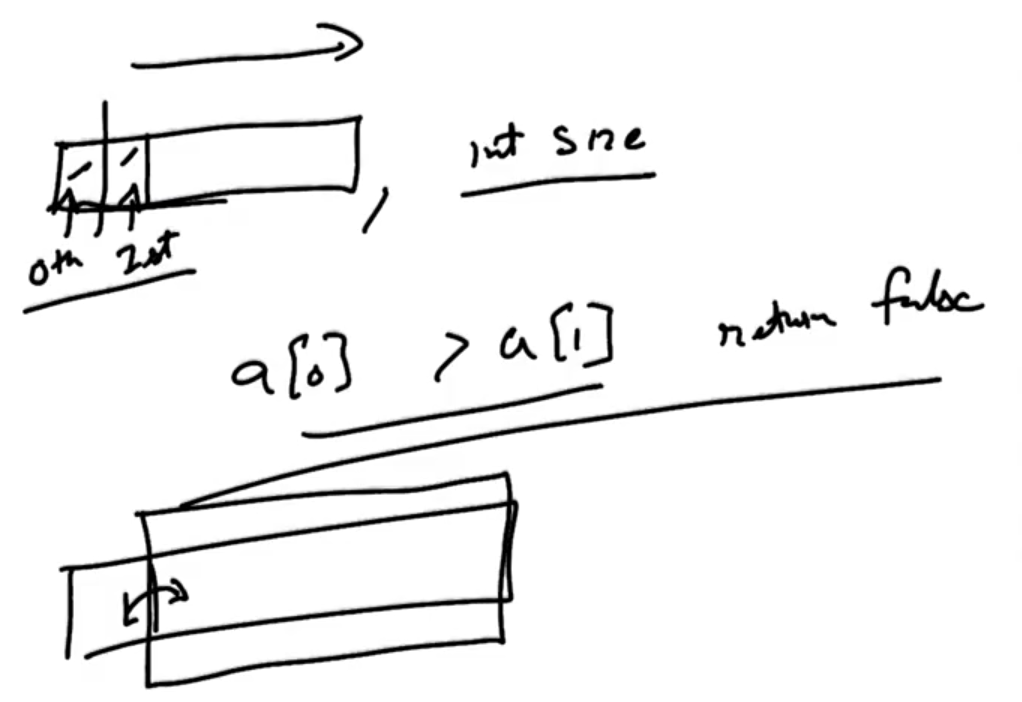 , int size
0th 1st
a[0] > a[1] return false